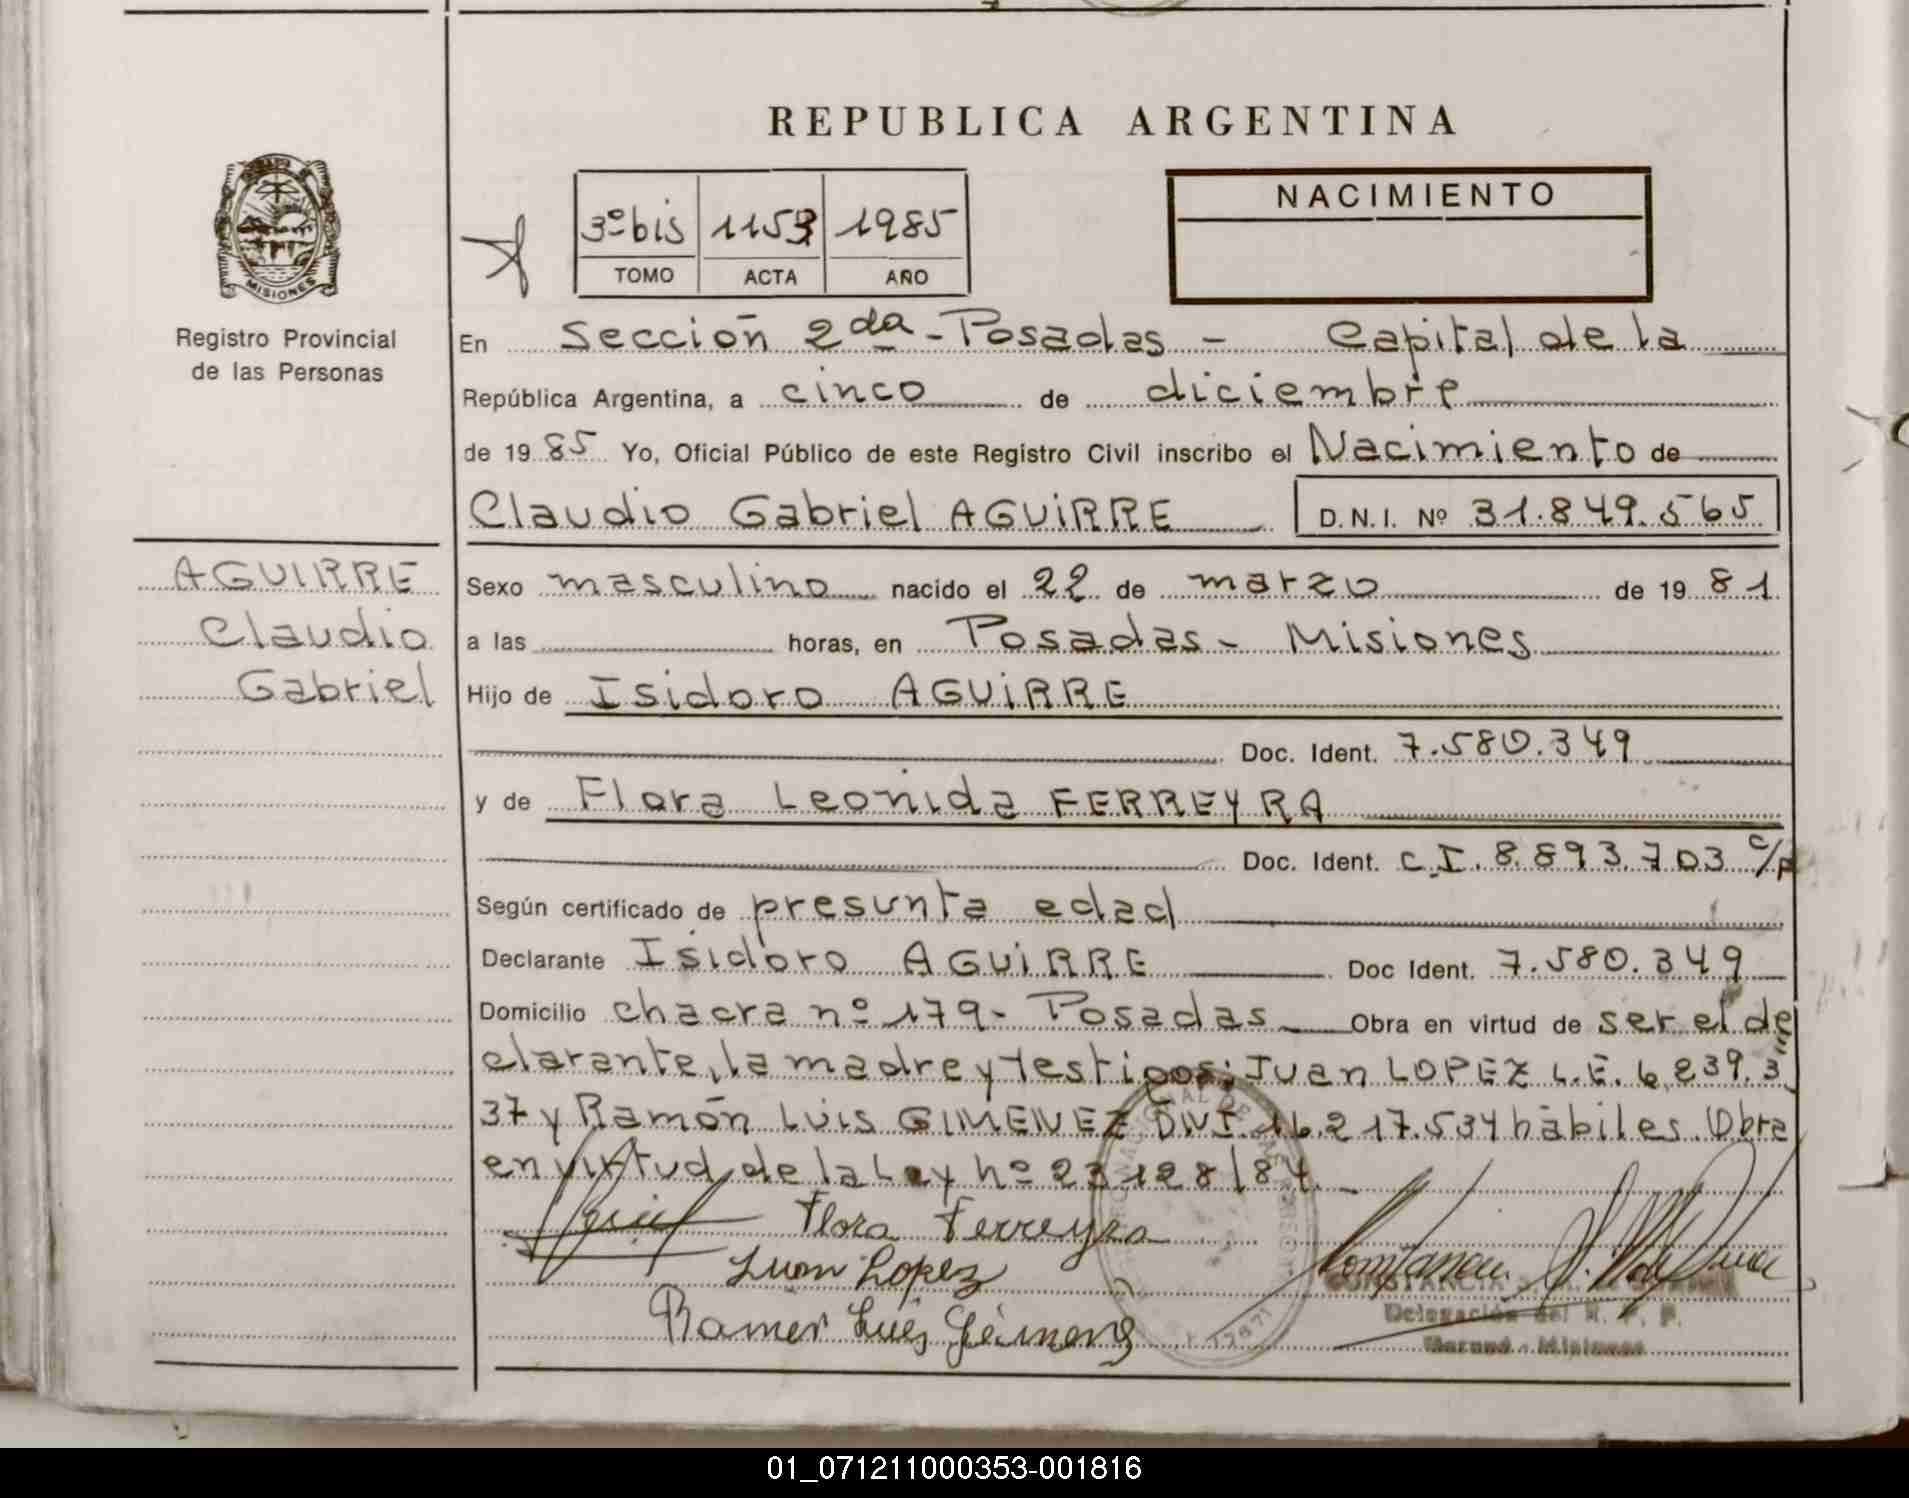 REPUBLICA ARGENTINA
NACIMIENTO
3º bis 1153 1985
TOMO ACTA AÑO
MISIONES
Registro Provincial
de las Personas
En Sección 2da - Posadas - Capital de la
República Argentina, a cinco de diciembre
de 1985 Yo, Oficial Público de este Registro Civil inscribo el Nacimiento de
Claudio Gabriel AGUIRRE D.N.I. Nº 31.849.565
AGUIRRE
Claudio
Gabriel
Sexo masculino nacido el 22 de marzo de 1981
a las horas, en Posadas - Misiones
Hijo de Isidoro AGUIRRE
Doc. Ident. 7.580.349
y de Flora Leonida FERREYRA
Doc. Ident. C.I. 8.893.703 c/p
Según certificado de presunta edad
Declarante Isidoro AGUIRRE Doc Ident. 7.580.349
Domicilio chacra nº 179 - Posadas Obra en virtud de ser el de
clarante, la madre y testigos: Juan LOPEZ L.E. 6.239.3
37 y Ramón Luis GIMENEZ DNI. 16.217.534 hábiles. Obra
en virtud de la Ley nº 23128/84. -
Flora Ferreyra
Juan Lopez
Ramon Luis Gimenez
Delegación del R. P. P.
Misiones
01_071211000353-001816